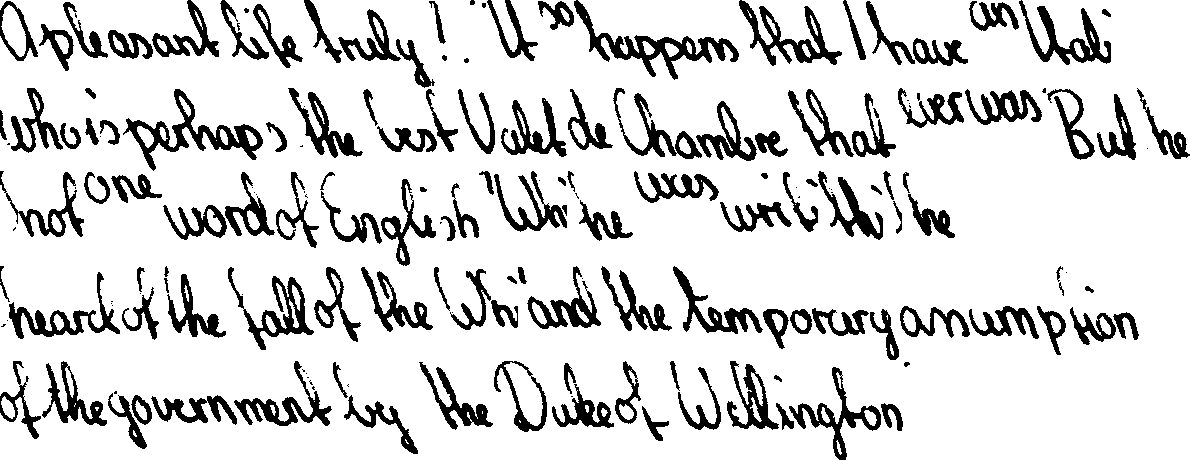 A pleasant life truly! . It so happens that I have an Itali
who is perhaps the best Valet de Chambre that ever was But he
not one word of English " Whi he was writi thi ! he
heard of the fall of the Whi " and the temporary assumption
of the government by the Duke of Wellington